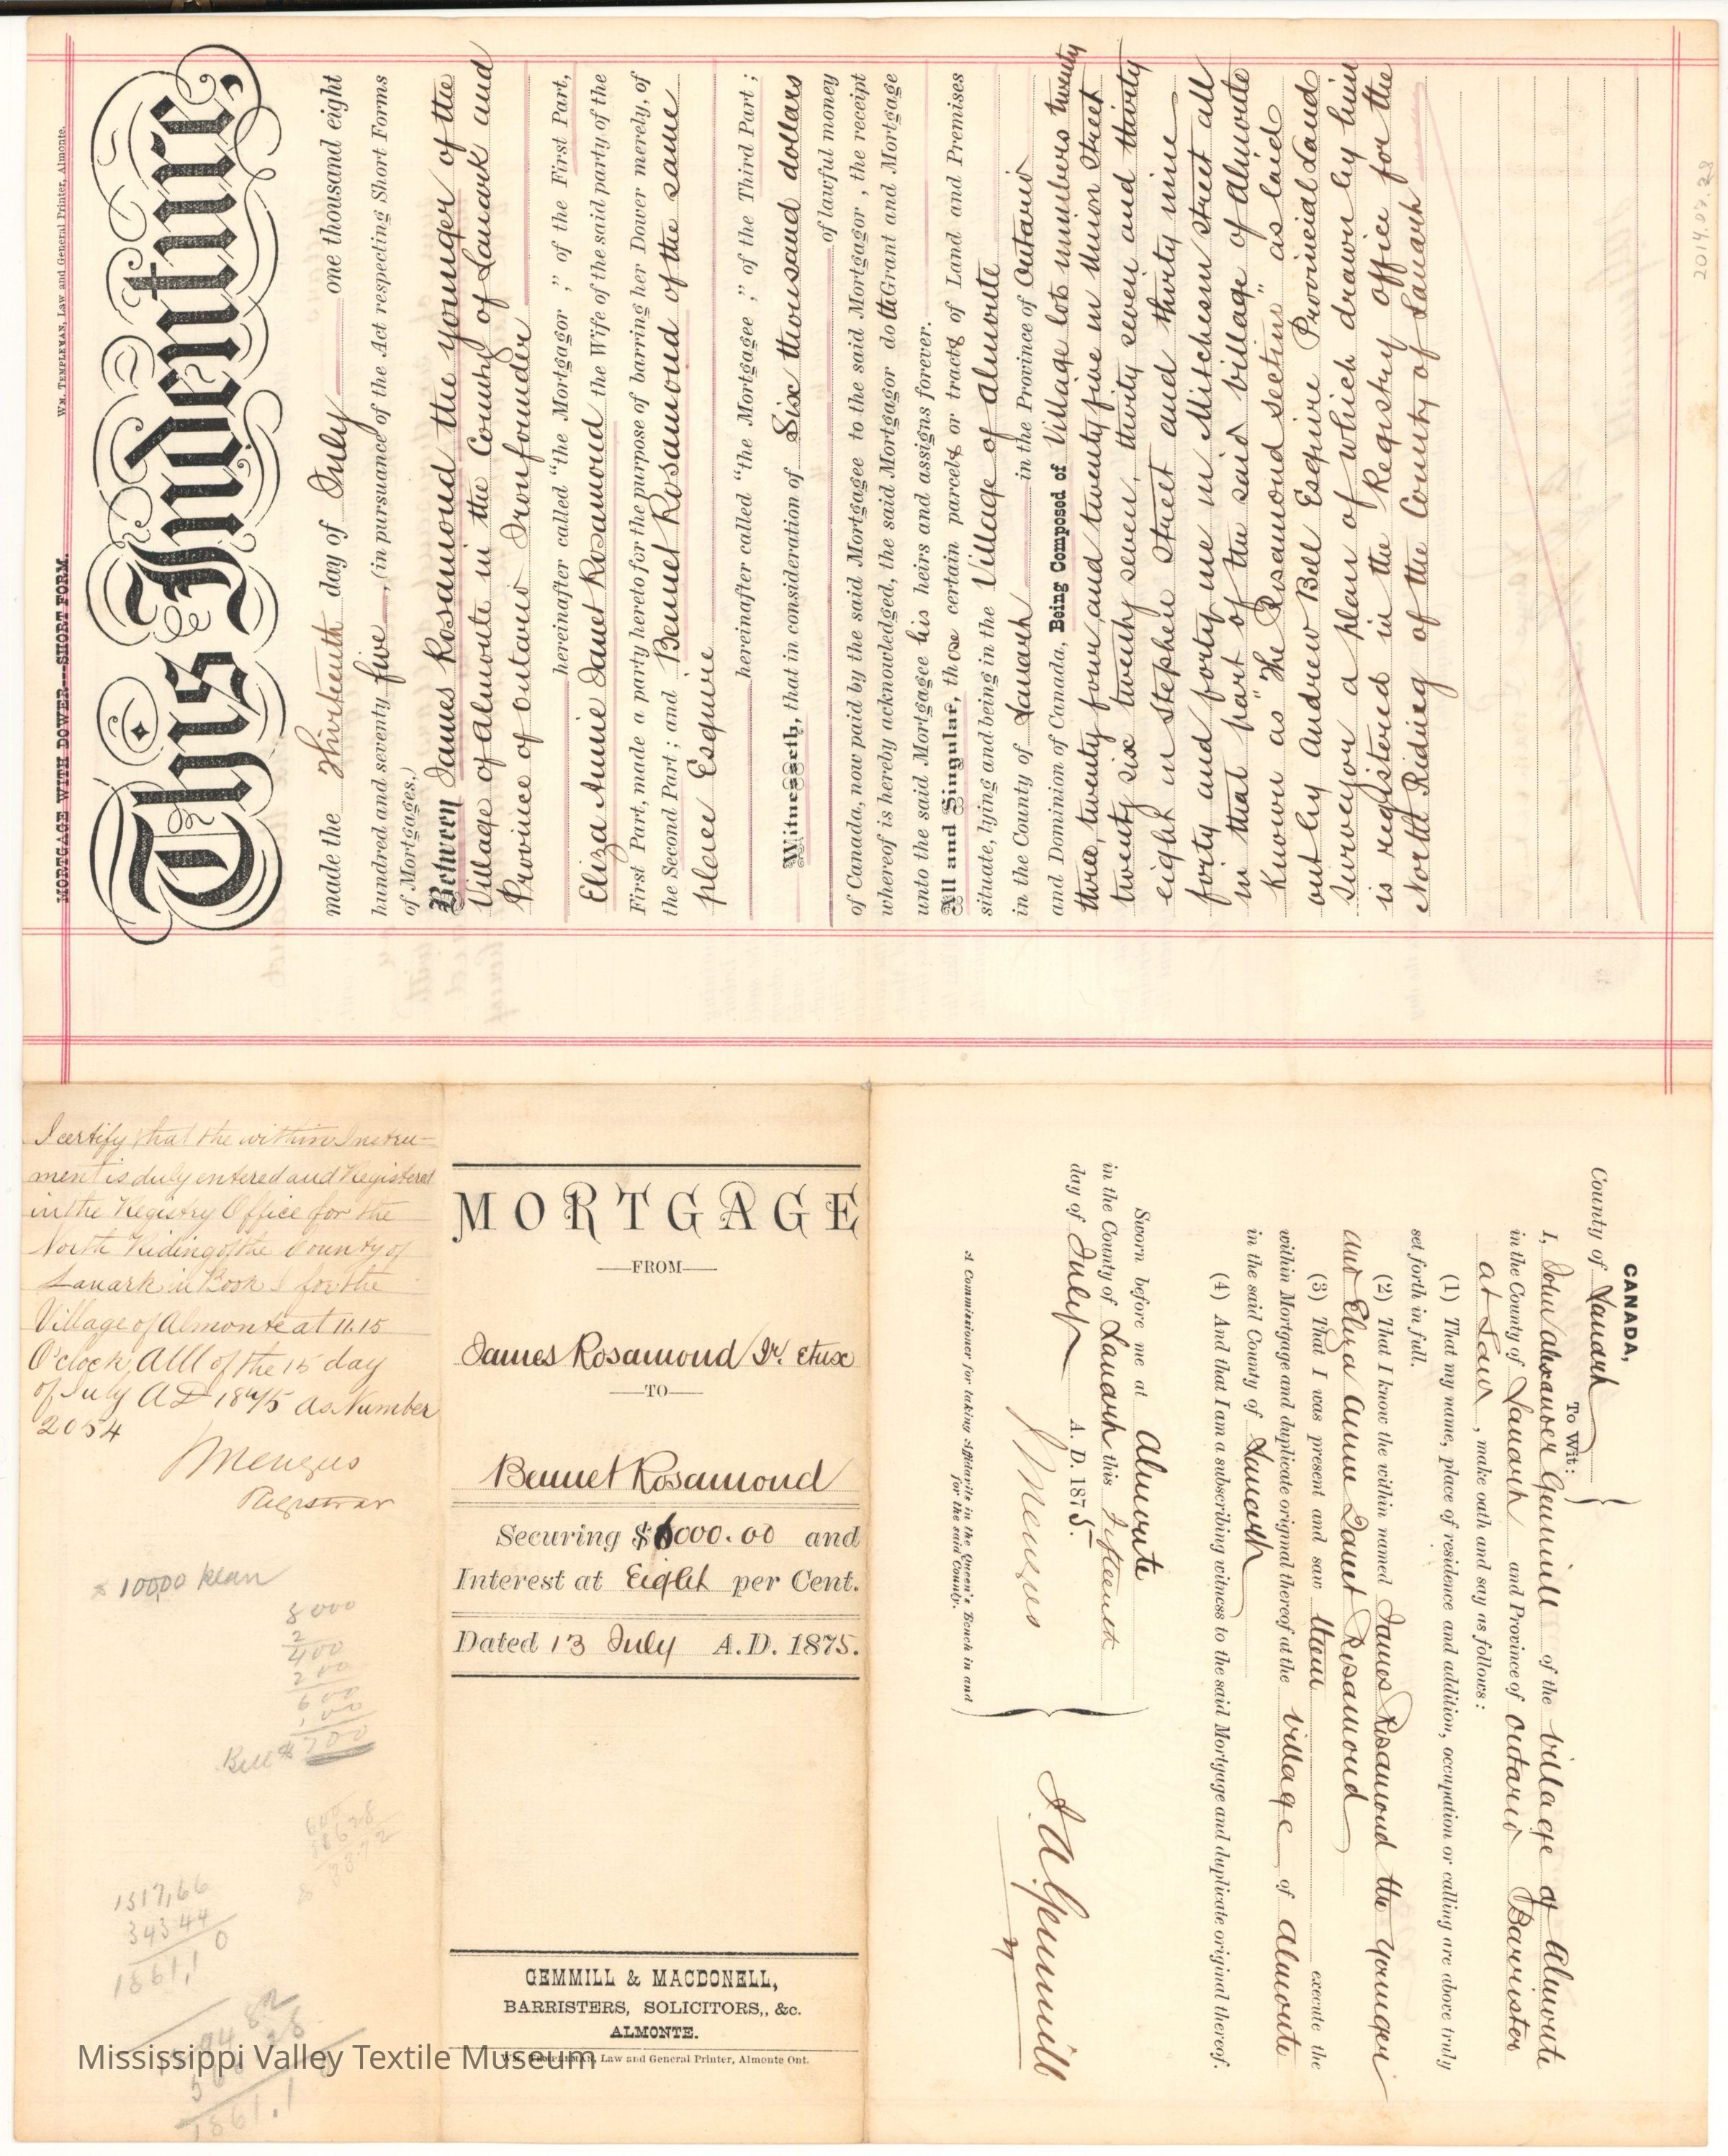 MORTGAGE WITH DOWER—SHORT FORM.
WM. TEMPLEMAN, Law and General Printer, Almonte.
This Indenture,
made the Thirteenth day of July one thousand eight
hundred and seventy five, (in pursuance of the Act respecting Short Forms
of Mortgages.)
Between James Rosamond the younger of the
Village of Almonte in the County of Lanark and
Province of Ontario Ironfounder
hereinafter called "the Mortgagor ," of the First Part,
Eliza Annie Janet Rosamond the Wife of the said party of the
First Part, made a party hereto for the purpose of barring her Dower merely, of
the Second Part; and Bennet Rosamond of the same
place Esquire
hereinafter called "the Mortgagee ," of the Third Part;
Witnesseth, that in consideration of Six thousand dollars
of lawful money
of Canada, now paid by the said Mortgagee to the said Mortgagor , the receipt
whereof is hereby acknowledged, the said Mortgagor doth Grant and Mortgage
unto the said Mortgagee his heirs and assigns forever.
All and Singular, those certain parcels or tracts of Land and Premises
situate, lying and being in the Village of Almonte
in the County of Lanark in the Province of Ontario
and Dominion of Canada, Being Composed of Village lots numbers twenty
three, twenty four, and twenty five in Union Street
twenty six twenty seven, thirty seven and thirty
eight in Stephen Street and thirty nine
forty and forty one in Mitcheson Street all
in that part of the said village of Almonte
Known as "The Rosamond section" as laid
out by Andrew Bell Esquire Provincial Land
Surveyor a plan of which drawn by him
is registered in the Registry office for the
North Riding of the County of Lanark
2014.07.28
I certify that the within Instru-
ment is duly entered and Registered
in the Registry Office for the
North Riding of the County of
Lanark in Book I for the
Village of Almonte at 11.15
O'clock AM of the 15 day
of July AD 1875 as Number
2054
J Menzies
Registrar
$ 10000
8000
2
400
200
600
100
Bell $ 700
1517,66
34344
1861,10
1861.1
MORTGAGE
FROM
James Rosamond Jr. et ux
TO
Bennet Rosamond
Securing $6000.00 and
Interest at Eight per Cent.
Dated 13 July A.D. 1875.
GEMMILL & MACDONELL,
BARRISTERS, SOLICITORS,, &c.
ALMONTE.
WM. TEMPLEMAN, Law and General Printer, Almonte Ont.
CANADA,
County of Lanark
To Wit:
I, John Alexander Gemmill of the village of Almonte
in the County of Lanark and Province of Ontario Barrister
at Law, make oath and say as follows:
(1) That my name, place of residence and addition, occupation or calling are above truly
set forth in full.
(2) That I know the within named James Rosamond the younger
and Eliza Annie Janet Rosamond
(3) That I was present and saw them execute the
within Mortgage and duplicate original thereof at the village of Almonte
in the said County of Lanark
(4) And that I am a subscribing witness to the said Mortgage and duplicate original thereof.
Sworn before me at Almonte
in the County of Lanark this fifteenth
day of July A. D. 1875.
J Menzies
J. A. Gemmill
A Commissioner for taking Affidavits in the Queen's Bench in and
for the said County.
Mississippi Valley Textile Museum